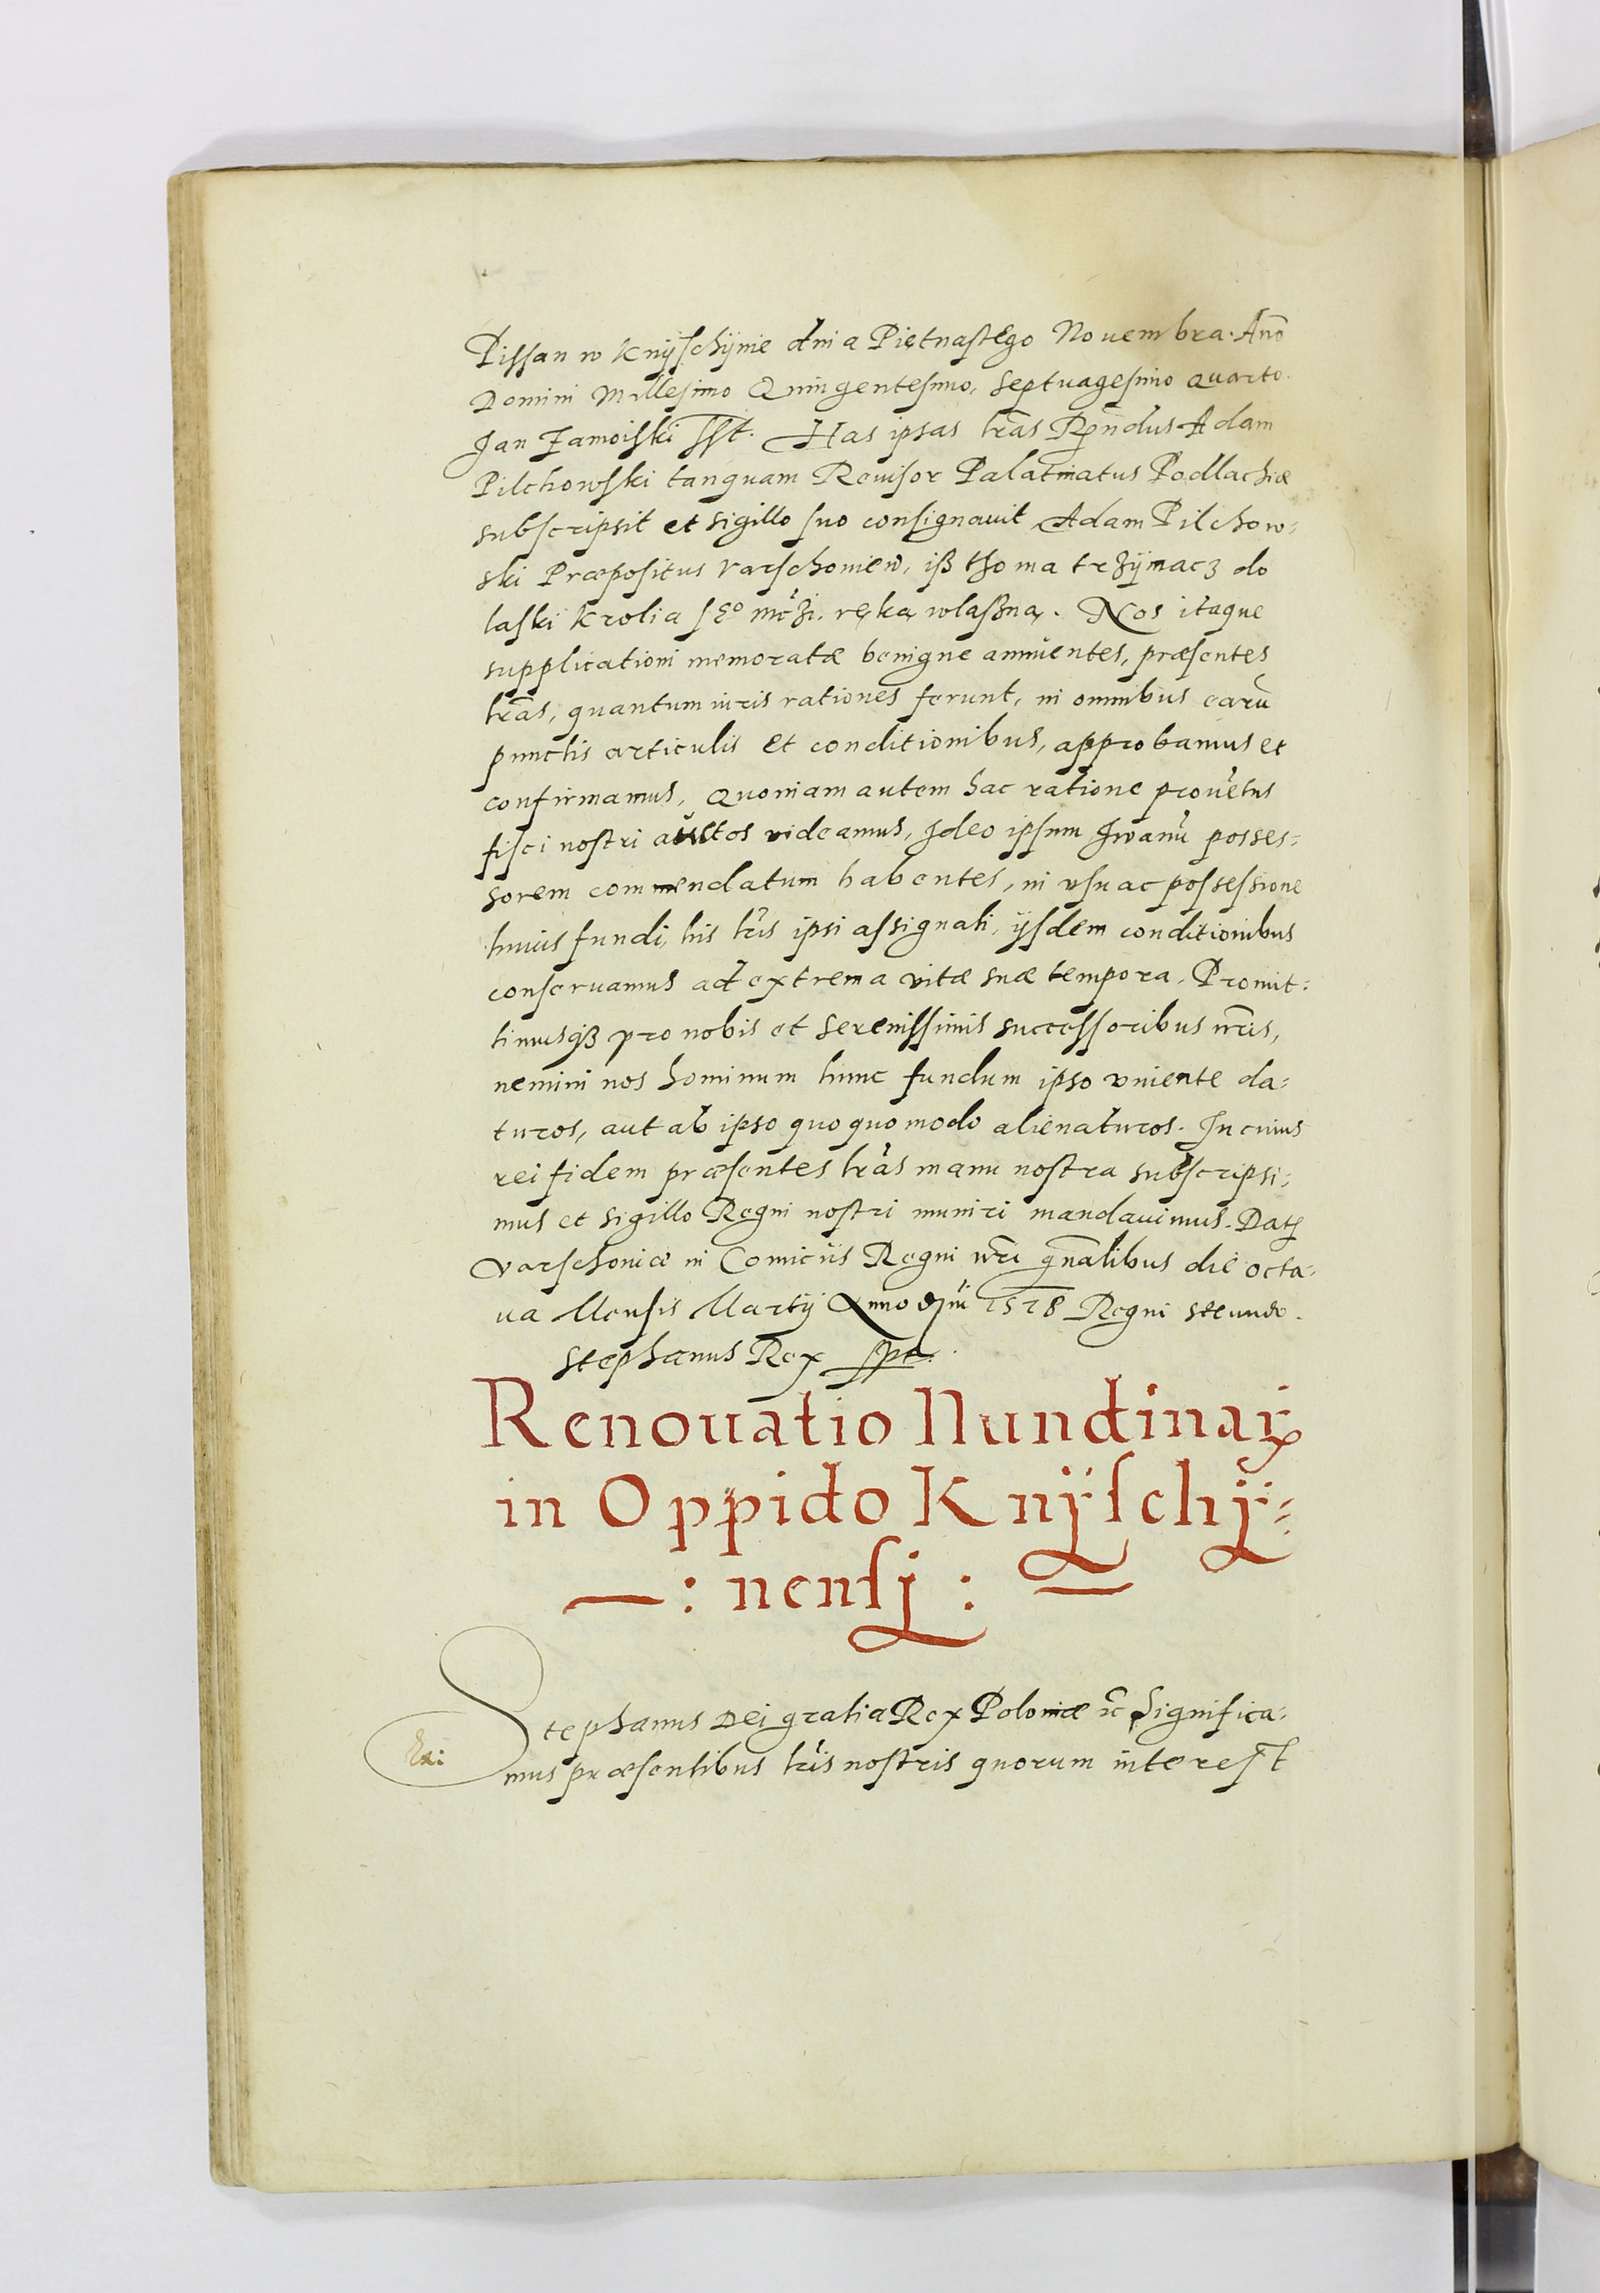 Pissan w Knÿschÿnie dnia Piętnastego Nouembra. Ano
Domini Millesimo Quingentesimo, Septuagesimo quarto.
Jan Zamoiski sst. Has ipsas lras Rndus Adam
Pilchowski tanquam Reuisor Palatinatus Podlachiæ
subscripsit et sigillo suo consignauit Adam Pilchow=
ski Præpositus Varschouien, iß tho ma trzÿmacz do
laski Krolia Je° mczi. ręką wlaßną. Nos itaque
supplicationi memoratæ benigne annuentes, præsentes
lras, quantum iuris rationes ferunt, in omnibus earu
punctis articulis et conditionibus, approbamus et
confirmamus, Quoniam autem hac ratione prouetus
fisci nostri auctos videamus, Ideo ipsum Iwanu posses=
sorem commendatum habentes, in vsu ac possessione
huius fundi, his lris ipsi assignati, ijsdem conditionibus
conseruamus ad extrema vitæ suæ tempora. Promit=
timusqз pro nobis et serenissimis successoribus nris,
nemini nos hominum hunc fundum ipso viuente da=
turos, aut ab ipso quoquo modo alienaturos. In cuius
rei fidem præsentes lras manu nostra subscripsi=
mus et sigillo Regni nostri muniri mandauimus. Dat
Varschouiæ in Comicijs Regni nri gnalibus die octa=
ua Mensis Martij Anno dni 1578 Regni secundo.
Stephanus Rex sst.
Renouatio Nundinaꝝ
in Oppido Knÿschÿ=
: nensj :
Stephanus Dei gratia Rex Poloniæ etc Significa=
mus præsentibus lris nostris quorum interest